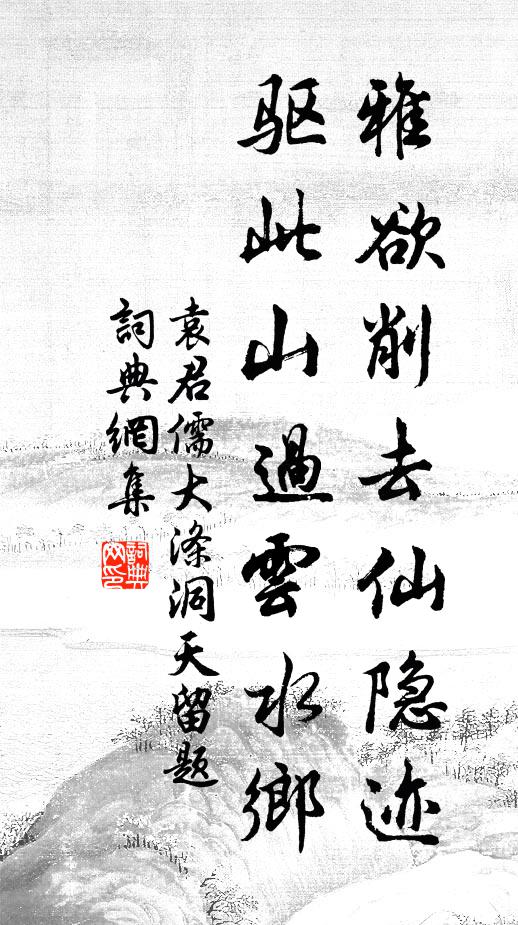 雅欲削去仙隐迹
驱此山過雲水鄉
袁君儒大涤洞天留題
詞典網集
詞典
网印